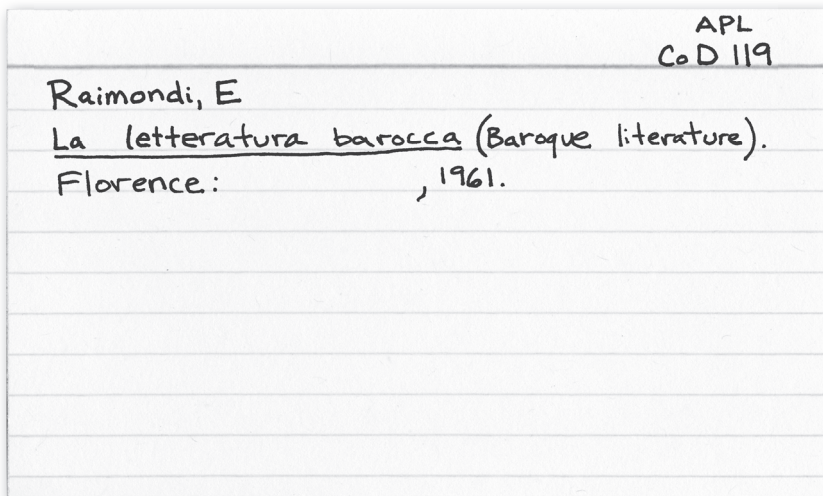 APL
CoD 119
Raimondi, E
La letteratura barocca (Baroque literature).
Florence: , 1961.